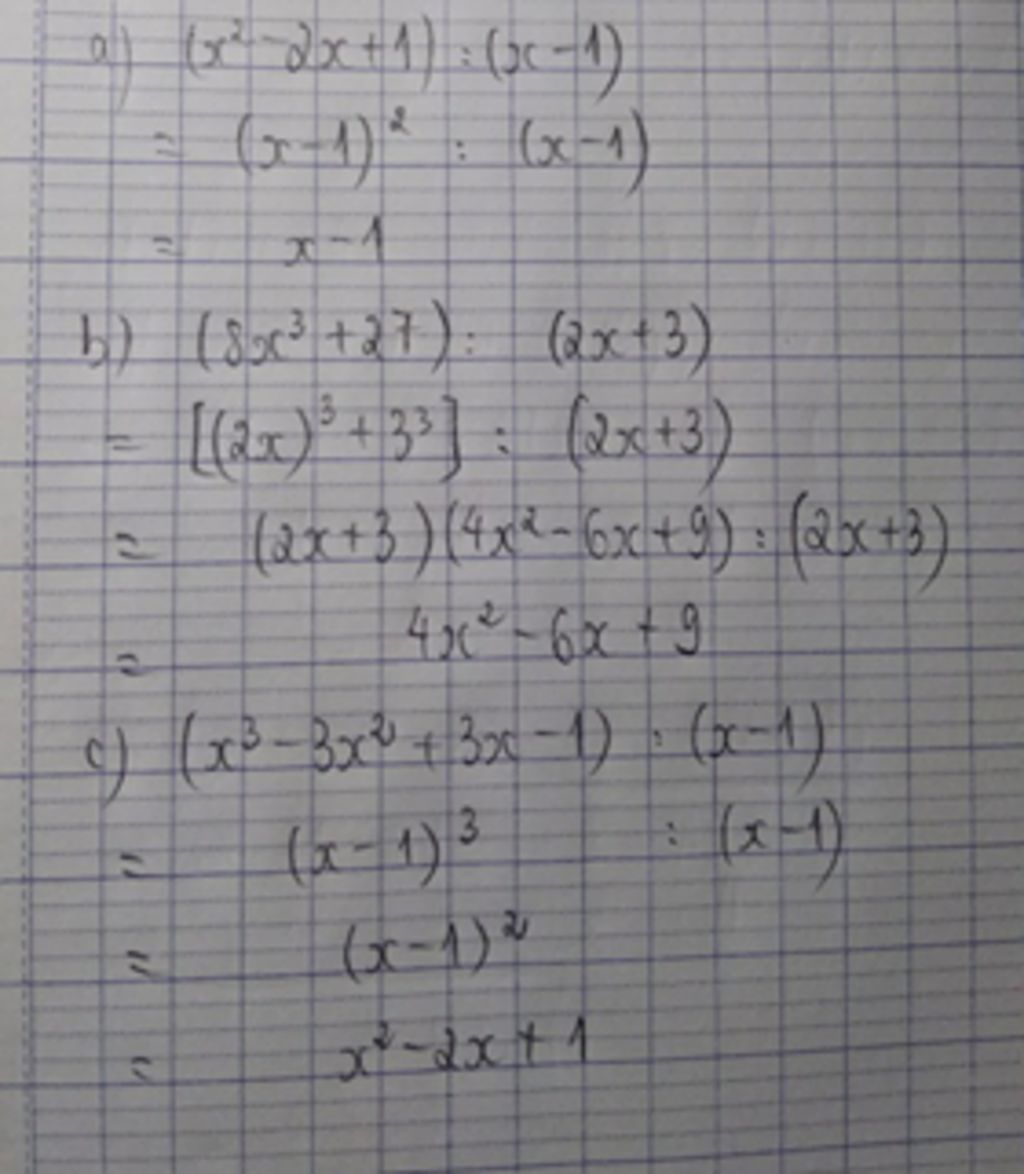 a) (x² - 2x + 1) : (x - 1)
= (x - 1)² : (x - 1)
= x - 1
b) (8x³ + 27) : (2x + 3)
= [(2x)³ + 3³] : (2x + 3)
= (2x + 3)(4x² - 6x + 9) : (2x + 3)
= 4x² - 6x + 9
c) (x³ - 3x² + 3x - 1) : (x - 1)
= (x - 1)³ : (x - 1)
= (x - 1)²
= x² - 2x + 1